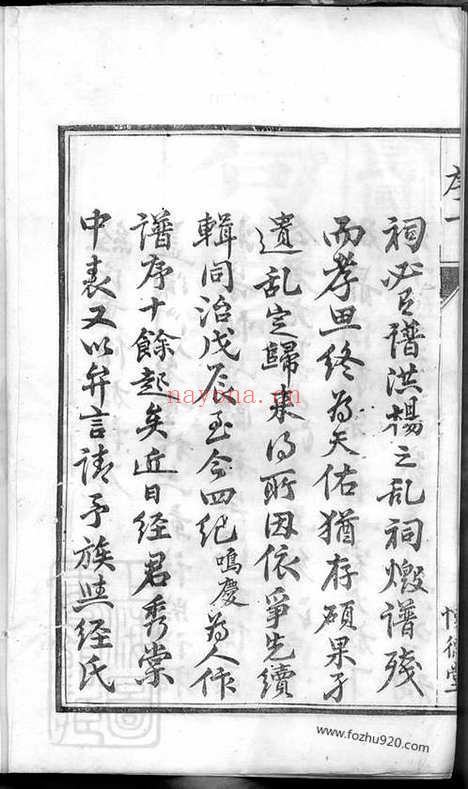 序一
祠必有譜洪楊之乱祠燬譜殘
而孝思終為天佑猶存碩果孑
遺乱定歸来得所因依爭先續
輯同治戊辰至今四紀鳴慶為人作
譜序十餘起矣近日經君秀棠
中表又以弁言請予族誼經氏
nayona.cn
www.fozhu920.com